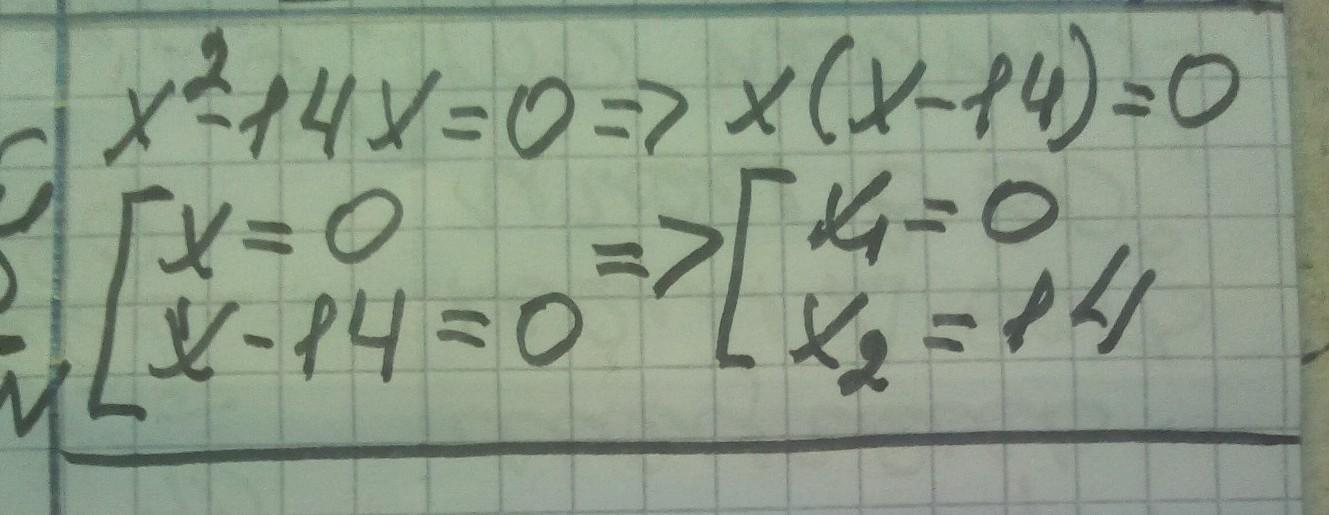 x²-14x=0=> x(x-14)=0
[x=0 => [x₁=0
x-14=0 x₂=14